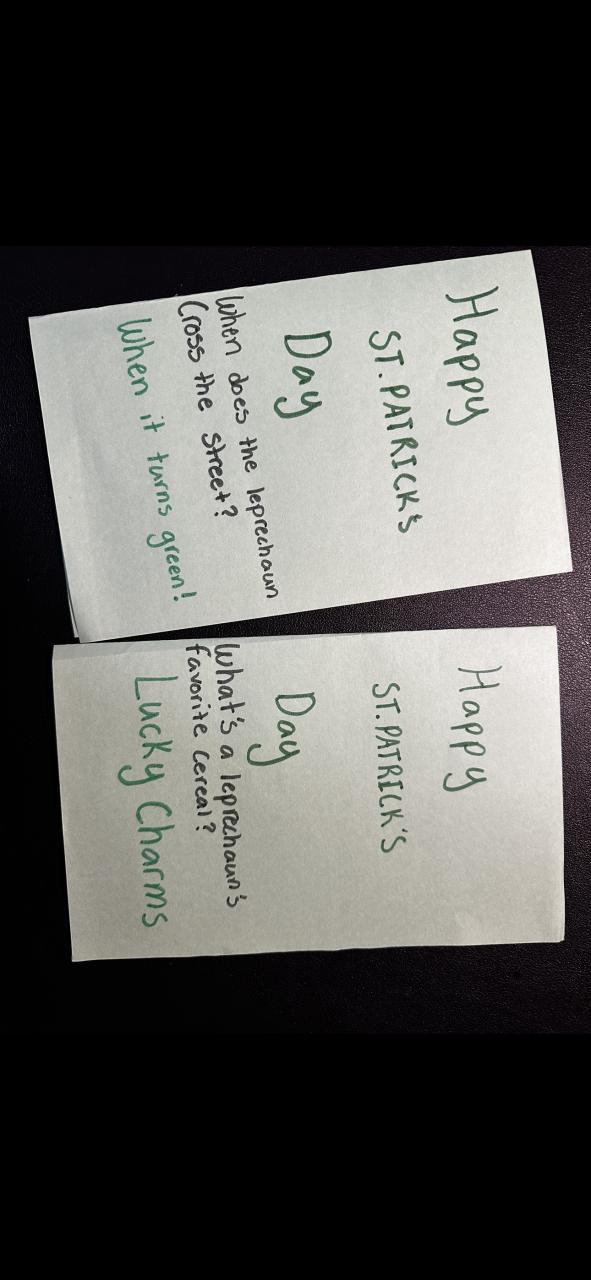 Happy
ST. PATRICK's
Day
When does the leprechaun
Cross the street?
When it turns green!
Happy
ST. PATRICK'S
Day
What's a leprechaun's
favorite cereal?
Lucky Charms